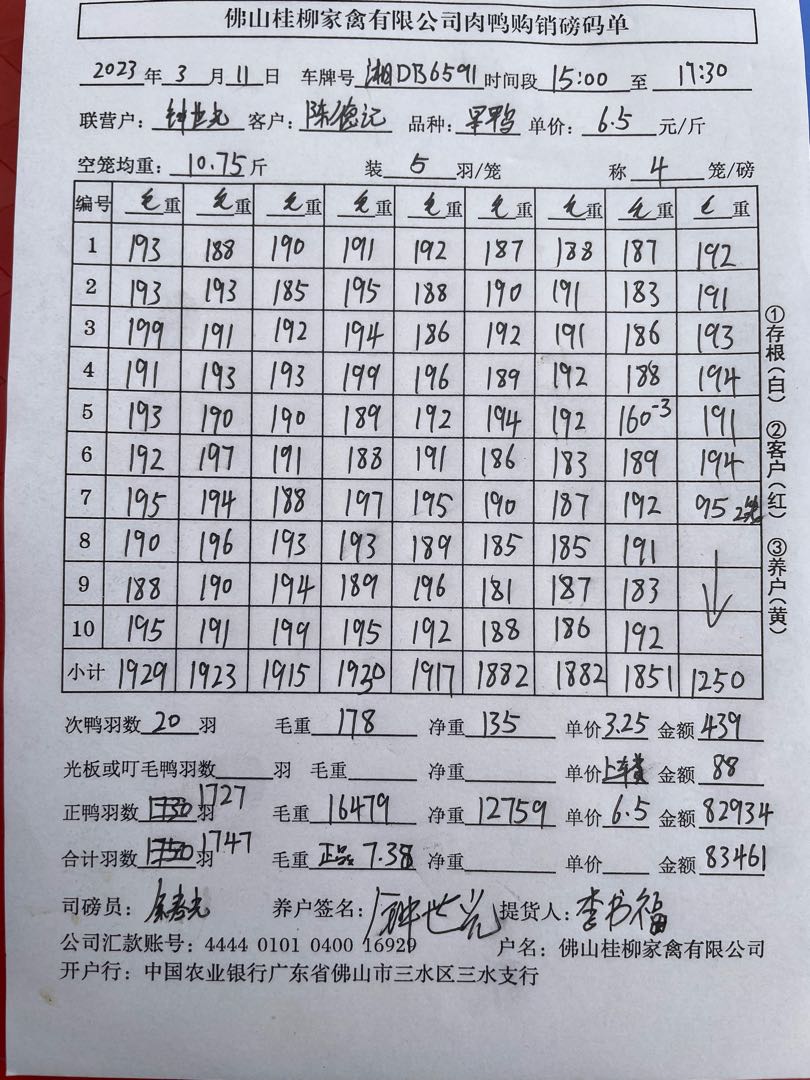 佛山桂柳家禽有限公司肉鸭购销磅码单
2023年 3 月 11 日 车牌号 湘DB6591 时间段 15:00 至 17:30
联营户: 钟世光 客户: 陈德记 品种: 单价: 6.5 元/斤
空笼均重: 10.75 斤 装 5 羽/笼 称 4 笼/磅
编号 毛重 毛重 毛重 毛重 毛重 毛重 毛重 毛重 毛重
1 193 188 190 191 192 187 188 187 192
2 193 193 185 195 188 190 191 183 191
3 199 191 192 194 186 192 191 186 193
4 191 193 193 199 196 189 192 188 194
5 193 190 190 189 192 194 192 160-3 191
6 192 197 191 188 191 186 183 189 194
7 195 194 188 197 195 190 187 192 95 2笼
8 190 196 193 193 189 185 185 191
9 188 190 194 189 196 181 187 183
10 195 191 199 195 192 188 186 192
小计 1929 1923 1915 1930 1917 1882 1882 1851 1250
次鸭羽数 20 羽 毛重 178 净重 135 单价 3.25 金额 439
光板或叮毛鸭羽数 羽 毛重 净重 单价 上车费 金额 88
正鸭羽数 1730 羽 1727 毛重 16479 净重 12759 单价 6.5 金额 82934
合计羽数 1750 羽 1747 毛重 正品 7.38 净重 单价 金额 83461
司磅员: 养户签名: 钟世光 提货人: 李书福
公司汇款账号: 4444 0101 0400 16929 户名: 佛山桂柳家禽有限公司
开户行: 中国农业银行广东省佛山市三水区三水支行
①存根(白) ②客户(红) ③养户(黄)